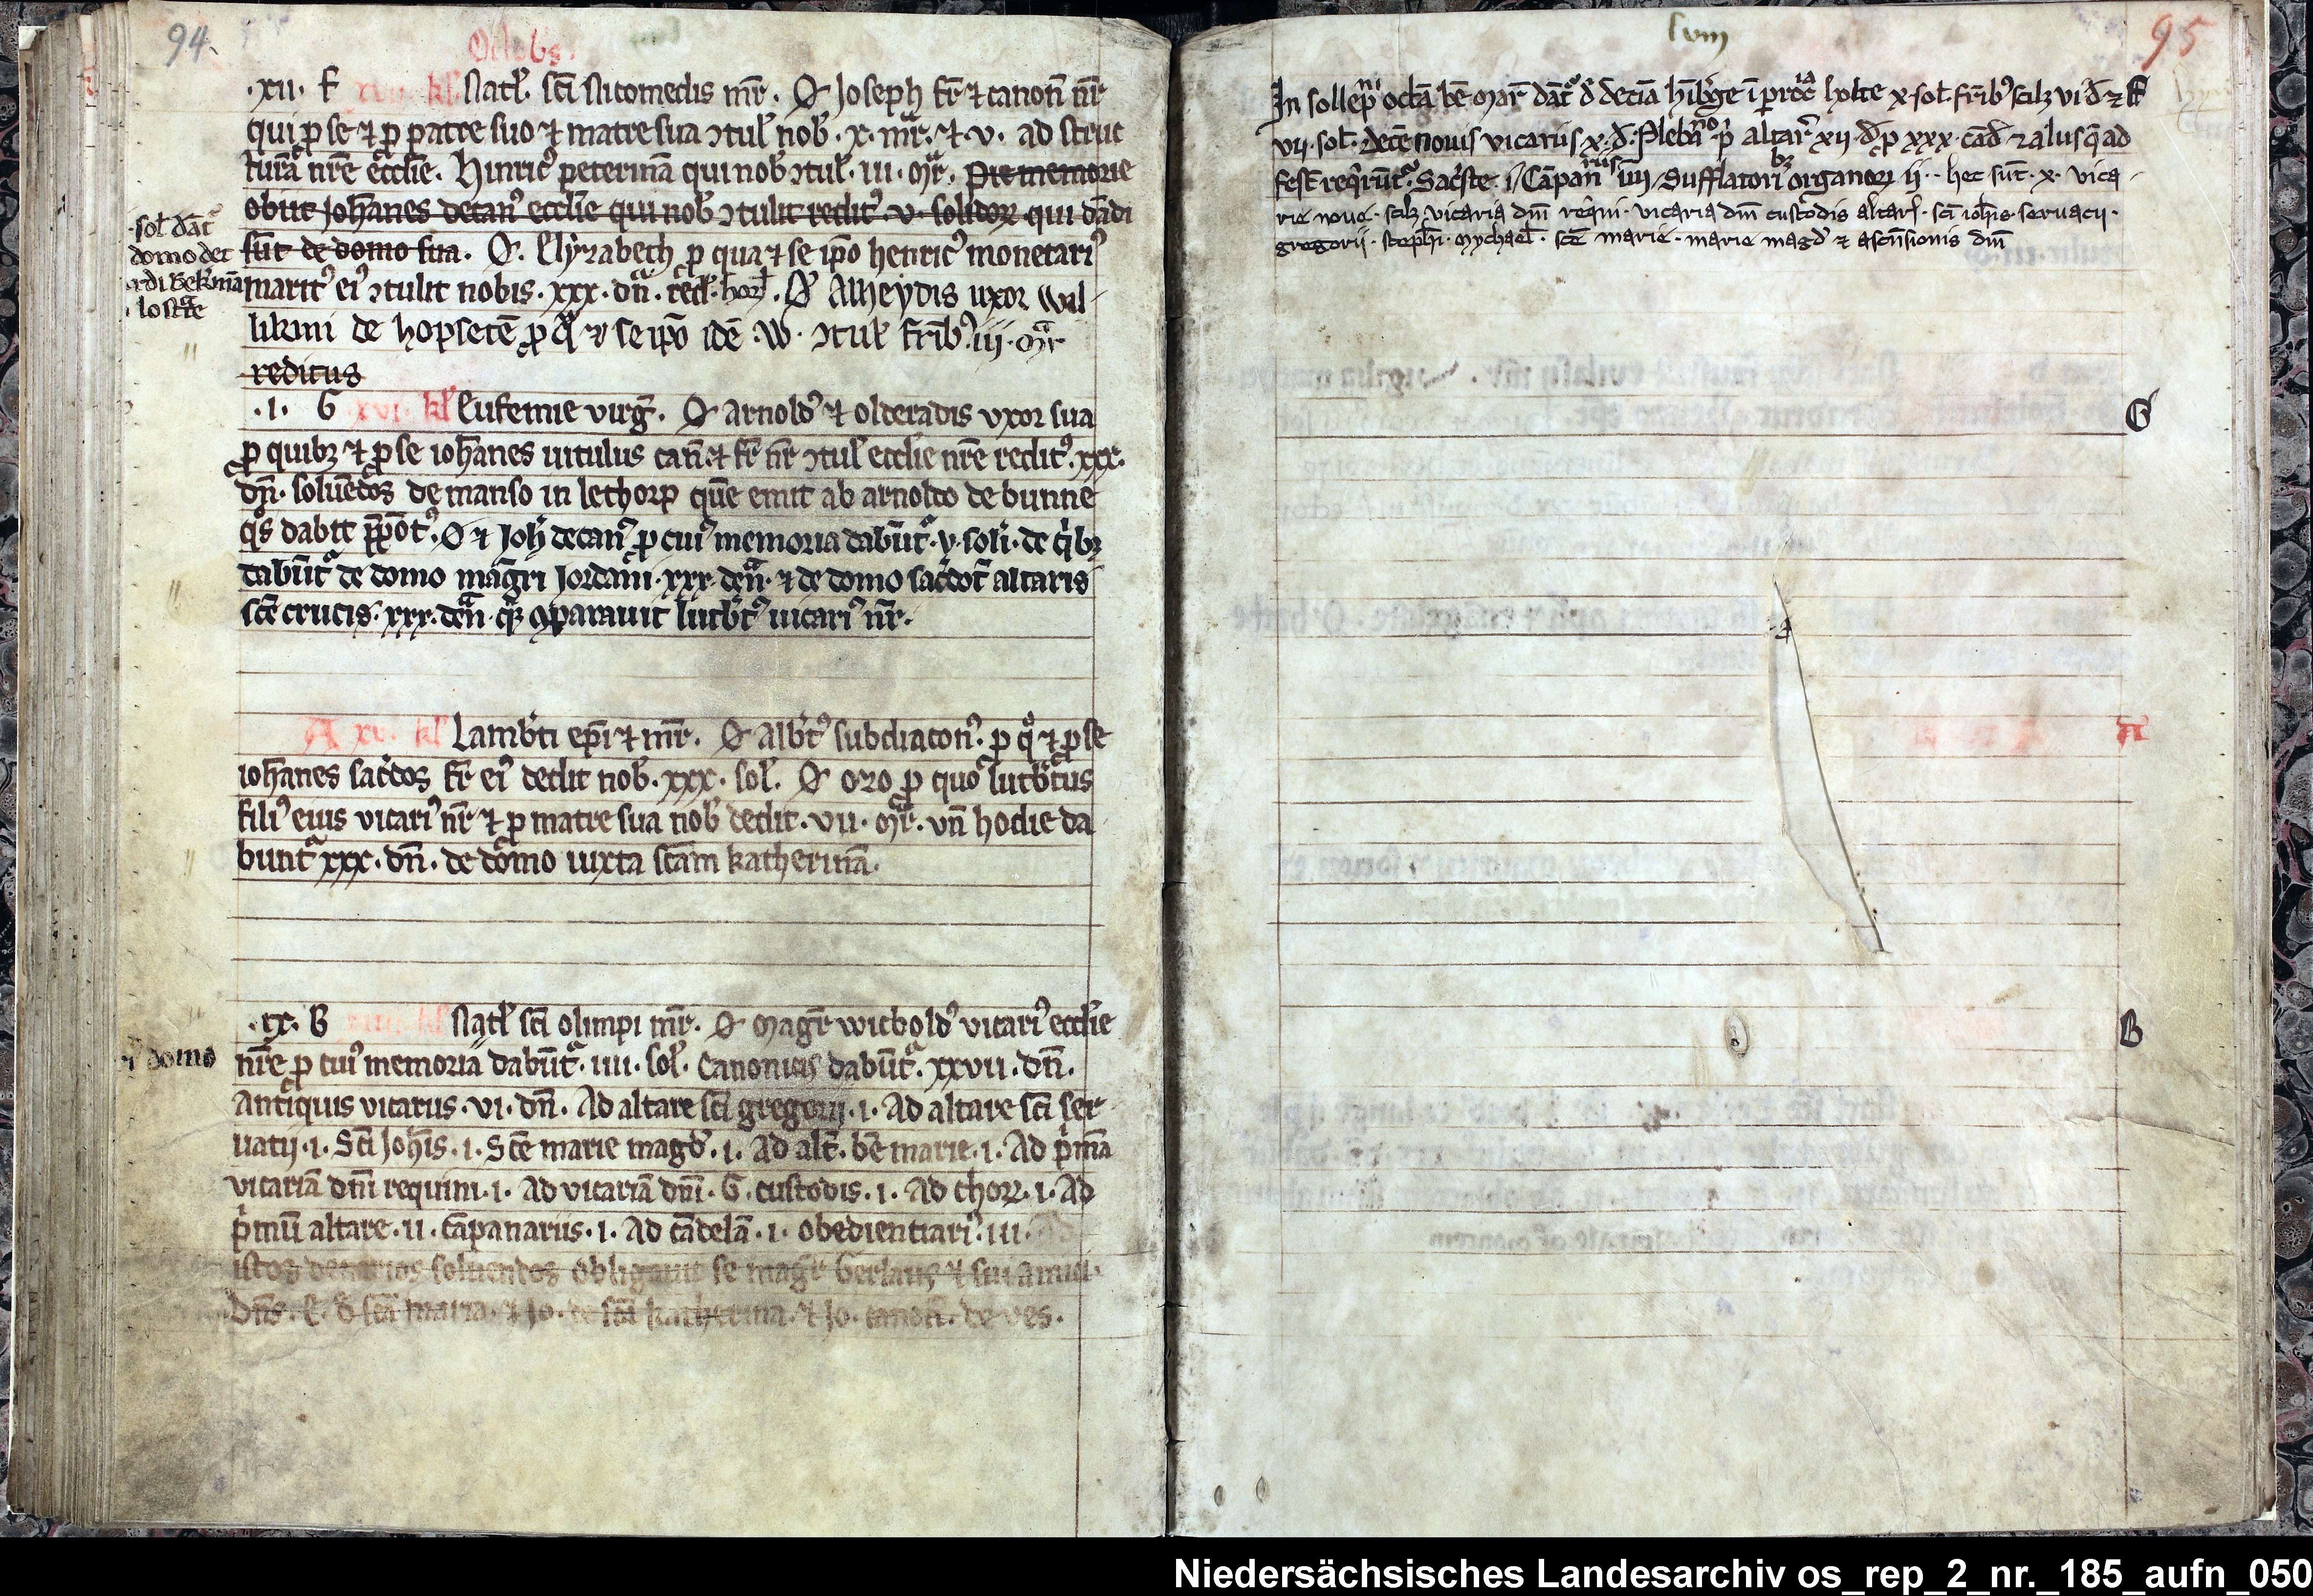 94
Octobs.
.xii. F xvii kl' Natl'. sc̄i Nicomedis mr̄. O' Joseph fr̄ ⁊ canon̄ nr̄
qui ꝑ se ⁊ ꝑ patre suo ⁊ matre sua ↄtul' nob'. x. mr̄. ⁊ v. ad struc
turā nr̄e eccl'ie. Hinricꝰ petermā qui nob' ↄtul'. iii. mr̄. Pie memorie
obiit Joh'anes decanꝰ eccl'ie qui nob' ↄtulit redit'. v. solidoꝝ qui dādi
sūt de domo sua. O'. Elyzabeth ꝑ qua ⁊ se ip̄o henricꝰ monetariꝰ
maritꝰ eiꝰ ↄtulit nobis. xxx. dn̄. red'. hor'. O' Alheydis uxor Wil
likini de hopsetē ꝑ q̄ ⁊ se ip̄o idē .W. ↄtul' fr̄ibꝰ iii. mr̄
reditus
sol' dāt
domo det
rdi Bekmā
lostr̄e
.i. G xvi. kl' Eufemie virḡ. O' arnoldꝰ ⁊ olderadis vxor sua
ꝑ quibꝫ ⁊ ꝑ se ioh'anes vitulus can̄. ⁊ fr̄ nr̄ ↄtul' eccl'ie nr̄e reditꝰ. xxx.
dn̄. soluēdos de manso in lethorp quē emit ab arnoldo de bunne
q̄s dabit p̄pōtꝰ. O' ⁊ Joh' decanꝰ ꝑ cuiꝰ memoria dabūt'. v. soli. de q'bꝫ
dabūt' de domo māgri Jordani. xxx. den̄. ⁊ de domo sac'dot' altaris
sc̄e crucis. xxx. den̄. q̄s ꝯparauit lutb'tꝰ uicariꝰ nr̄.
A xv. kl' Lamb'ti ep̄i ⁊ mr̄. O' Alb'tꝰ subdiaconꝰ. ꝑ q° ⁊ ꝑ se
ioh'anes sac'dos fr̄ eiꝰ dedit nob'. xxx. sol'. O' ozo ꝑ quo lutb'tus
filiꝰ eius vicariꝰ nr̄ ⁊ ꝑ matre sua nob' dedit. vii. mr̄. vn̄ hodie da
bunt' xxx. dn̄. de domo iuxta sc̄am katherinā.
.ix. B xiiii. kl' Natl' sc̄i olimpi mr̄. O' Magr̄ wicboldꝰ vicariꝰ eccl'ie
domo
nr̄e ꝑ cuiꝰ memoria dabūt'. iiii. sol'. Canonicis dabūt'. xxvii. dn̄.
Antiquis vicariis. vi. dn̄. Ad altare sc̄i gregorij. i. Ad altare sc̄i ser
uatij. i. Sc̄i Joh̄is. i. Sc̄e marie magd'. i. Ad alt'. bē marie. i. Ad p'mā
vicariā dn̄i requini. i. Ad vicariā dn̄i. G. custodis. i. Ad choꝝ. i. Ad
p'mū altare. ii. Cāpanariis. i. Ad cādelā. i. obedientiariꝰ. iii. Ad
istos denarios soluendos obligauit se magr̄ Gerlaus ⁊ sui amici.
Dn̄s. E. d' sc̄a maria. ⁊ Jo. de sc̄a katherina. ⁊ Jo. canon̄. de ves.
lviii
95
In sollep̄ni octā bē mar̄ dāt' d' deciā hib'ge ī parrᵒc'ia holte x. sol'. fr̄ibꝰ scilꝫ vi d' ⁊ F
vii. sol'. Decē nouis vicariis x. d'. Plebāno p' altar' xii. d'. p xxx. cād' ⁊ aliis q̄ ad
fest' req'rūt'. Sac'ste. i Cāpanariis iiii Sufflatoribꝫ organoꝝ ii. hec sūt. x. vica
rie noue. scilꝫ vicaria dn̄i req'ni. vicaria dn̄i custodis altar'. sc̄i ioh̄is. seruacij.
gregorij. stephi. mychael'. sc̄e marie. marie magd' ⁊ ascēnsionis dn̄i
G
A
B
Niedersächsisches Landesarchiv os_rep_2_nr._185_aufn_050